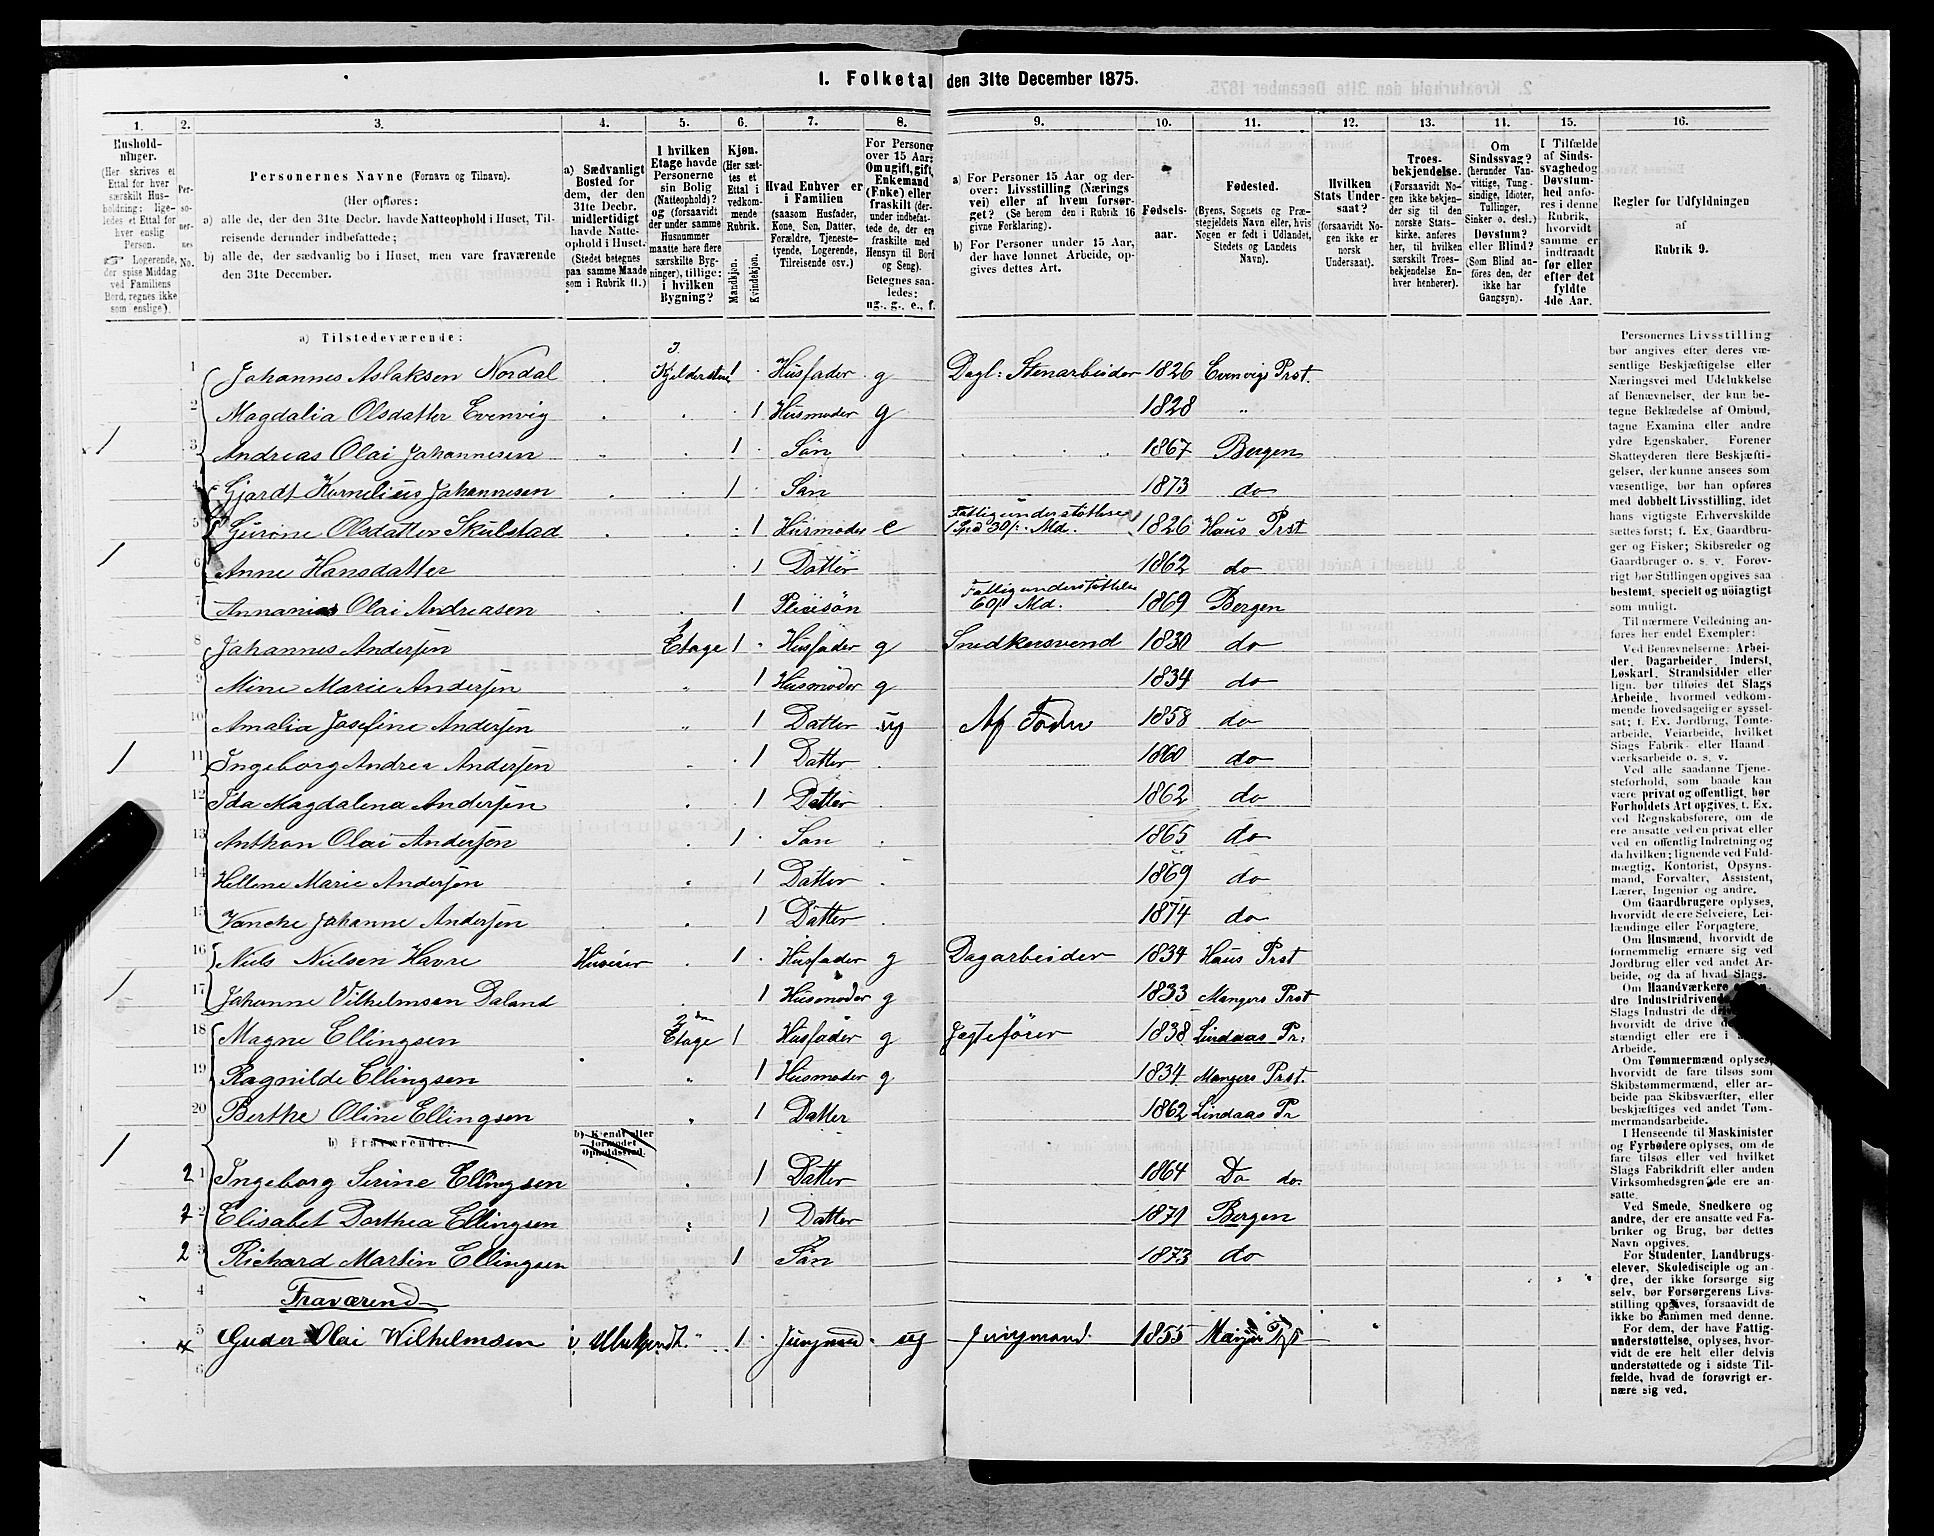 1. Folketal den 31te December 1875.
1. 2. 3. 4. 5. 6. 7. 8. 9. 10. 11. 12. 13. 14. 15. 16.
Hushold-
ninger.
(Her skrives et
Ettal for hver
særskilt Hus-
holdning; lige-
ledes et Ettal for
hver enslig
Person.
Logerende,
der spise Middag
ved Familiens
Bord, regnes ikke
som enslige).
Per-
so-
ner-
nes
No.
Personernes Navne (Fornavn og Tilnavn).
(Her opføres:
a) alle de, der den 31te Decbr. havde Natteophold i Huset, Til-
reisende derunder indbefattede;
b) alle de, der sædvanlig bo i Huset, men vare fraværende
den 31te December.
a) Sædvanligt
Bosted for
dem, der den
31te Decbr.
midlertidigt
havde Natte-
ophold i Huset.
(Stedet betegnes
paa samme Maade
som i Rubrik 11.)
I hvilken
Etage havde
Personerne
sin Bolig
(Natteophold)?
og (forsaavidt
der under samme
Husnummer
maatte høre flere
særskilte Byg-
ninger), tillige:
i hvilken
Bygning?
Kjøn.
(Her sæt-
tes et
Ettal i
vedkom-
mende
Rubrik.
Mandkjøn.
Kvindekjøn.
Hvad Enhver er
i Familien
(saasom Husfader,
Kone, Søn, Datter,
Forældre, Tjeneste-
tyende, Logerende,
Tilreisende osv.)
For Personer
over 15 Aar:
Om ugift, gift,
Enkemand
(Enke) eller
fraskilt (der-
under indbefat-
tede de, der ere
fraskilte med
Hensyn til Bord
og Seng).
Betegnes saa-
ledes:
ug., g., e., f.
a) For Personer 15 Aar og der-
over: Livsstilling (Nærings
vei) eller af hvem forsør-
get? (Se herom den i Rubrik 16
givne Forklaring).
b) For Personer under 15 Aar,
der have lønnet Arbeide, op-
gives dettes Art.
Fødsels-
aar.
Fødested.
(Byens, Sognets og Præ-
stegjeldets Navn eller, hvis
Nogen er født i Udlandet,
Stedets og Landets
Navn).
Hvilken
Stats Under-
saat?
(forsaavidt No-
gen ikke er
norsk
Undersaat).
Troes-
bekjendelse.
(Forsaavidt No-
gen ikke bekjen-
der sig til den
norske Stats-
kirke, anføres
her, til hvilken
særskilt Troes-
bekjendelse En-
hver henhører).
Om
Sindssvag?
(herunder Van-
vittige, Tung-
sindige, Idioter,
Tullinger,
Sinker o. desl.)
Døvstum?
eller Blind?
(Som Blind an-
føres den, der
ikke har
Gangsyn).
I Tilfælde
af Sinds-
svaghed og
Døvstum-
hed anfø-
res i denne
Rubrik,
hvorvidt
samme er
indtraadt
før eller
efter det
fyldte
4de Aar.
Regler for Udfyldningen
af
Rubrik 9.
a) Tilstedeværende:
1 Johannes Aslaksen Nordal Kjelderstue 1 Husfader g Dagl: Stenarbeider 1826 Evenvigs Prst.
2 Magdalia Olsdatter Evenvig 1 Husmoder g 1828 "
1 3 Andreas Olai Johannesen 1 Søn 1867 Bergen
4 Gjardt Kornelius Johannesen 1 Søn 1873 do
5 Gurine Olsdatter Skulstad 1 Husmoder e Fattigunderstøttelse 1 Spd 30/: Md. 1826 Haus Prst
1 6 Anne Hansdatter 1 Datter 1862 do
7 Annanias Olai Andreasen 1 Pleiesøn Fattigunderstøttelse 60/ Md. 1869 Bergen
8 Johannes Andersen 1 Etage 1 Husfader g Snedkersvend 1830 do
9 Mine Marie Andersen " 1 Husmoder g 1834 do
10 Amalia Josefine Andersen " 1 Datter ug Af Fader 1858 do
1 11 Ingeborg Andrea Andersen 1 Datter 1860 do
12 Ida Magdalena Andersen 1 Datter 1862 do
13 Anthon Olai Andersen 1 Søn 1865 do
14 Hellene Marie Andersen " 1 Datter 1869 do
15 Vencke Johanne Andersen 1 Datter 1874 do
16 Niels Nielsen Havre Huseier 1 Husfader g Dagarbeider 1834 Haus Prst
1 17 Johanne Vilhelmsen Daland 1 Husmoder g 1833 Mangers Prst
18 Magne Ellingsen 2den Etage 1 Husfader g Jægtefører 1838 Lindaas Pr:
19 Ragnilde Ellingsen " 1 Husmoder g 1834 Mangers Prst.
20 Berthe Oline Ellingsen " 1 Datter 1862 Lindaas Pr
1 b) Fraværende: b) Kjendt eller
formodet
Opholdssted.
21 Ingeborg Serine Ellingsen 1 Datter 1864 Do do.
2 Elisabet Dorthea Ellingsen " 1 Datter 1871 Bergen
2 3 Richard Martin Ellingsen 1 Søn 1873 do
4 Fraværend
5 Guder Olai Wilhelmsen Ubekjendt 1 Jungmand ug Jungmand. 1855 Mangers Prst
6
Personernes Livsstilling
bør angives efter deres væ-
sentlige Beskjæftigelse eller
Næringsvei med Udelukkelse
af Benævnelser, der kun be-
tegne Beklædelse af Ombud,
tagne Examina eller andre
ydre Egenskaber. Forener
Skatteyderen flere Beskjæfti-
gelser, der kunne ansees som
væsentlige, bør han opføres
med dobbelt Livsstilling, idet
hans vigtigste Erhvervskilde
sættes først; f. Ex. Gaardbru-
ger og Fisker; Skibsreder og
Gaardbruger o. s. v. Forøv-
rigt bør Stillingen opgives saa
bestemt, specielt og nøiagtigt
som muligt.
Til nærmere Veiledning an-
føres her endel Exempler:
Ved Benævnelserne: Arbei-
der, Dagarbeider, Inderst,
Løskarl, Strandsidder eller
lign. bør tilføies det Slags
Arbeide, hvormed vedkom-
mende hovedsagelig er syssel-
sat; f. Ex. Jordbrug, Tomte-
arbeide, Veiarbeide, hvilket
Slags Fabrik- eller Haand-
værksarbeide o. s. v.
Ved alle saadanne Tjene-
steforhold, som baade kan
være privat og offentligt, bør
Forholdets Art opgives, t. Ex.
ved Regnskabsførere, om de
ere ansatte ved en privat eller
ved en offentlig Indretning og
da hvilken; lignende ved Fuld-
mægtig, Kontorist, Opsyns-
mand, Forvalter, Assistent,
Lærer, Ingeniør og andre.
Om Gaardbrugere oplyses,
hvorvidt de ere Selveiere, Lei-
lændinge eller Forpagtere.
Om Husmænd, hvorvidt de
fornemmelig ernære sig ved
Jordbrug eller ved andet Ar-
beide, og da af hvad Slags.
Om Haandværkere
dre Industridrivende
Slags Industri de
hvorvidt de drive
stændigt eller ere i
Arbeide.
Om Tømmermænd oplyses,
hvorvidt de fare tilsøs som
Skibstømmermænd, eller ar-
beide paa Skibsværfter, eller
beskjæftiges ved andet Tøm-
mermandsarbeide.
I Henseende til Maskinister
og Fyrbødere oplyses, om de
fare tilsøs eller ved hvilket
Slags Fabrikdrift eller anden
Virksomhedsgren de ere an-
satte.
Ved Smede, Snedkere og
andre, der ere ansatte ved Fa-
briker og Brug, bør dettes
Navn opgives.
For Studenter, Landbrugs-
elever, Skoledisciple og an-
dre, der ikke forsørge sig
selv, bør Forsørgerens Livs-
stilling opgives, forsaavidt de
ikke bo sammen med denne.
For dem, der have Fattig-
understøttelse, oplyses, hvor-
vidt de ere helt eller delvis
understøttede og i sidste Til-
fælde, hvad de forøvrigt er-
nære sig ved.